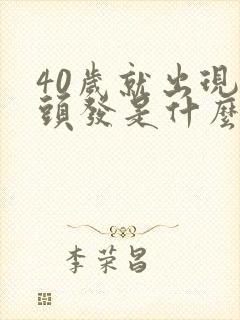 40歲就出現
頭發是什麼
李荣昌